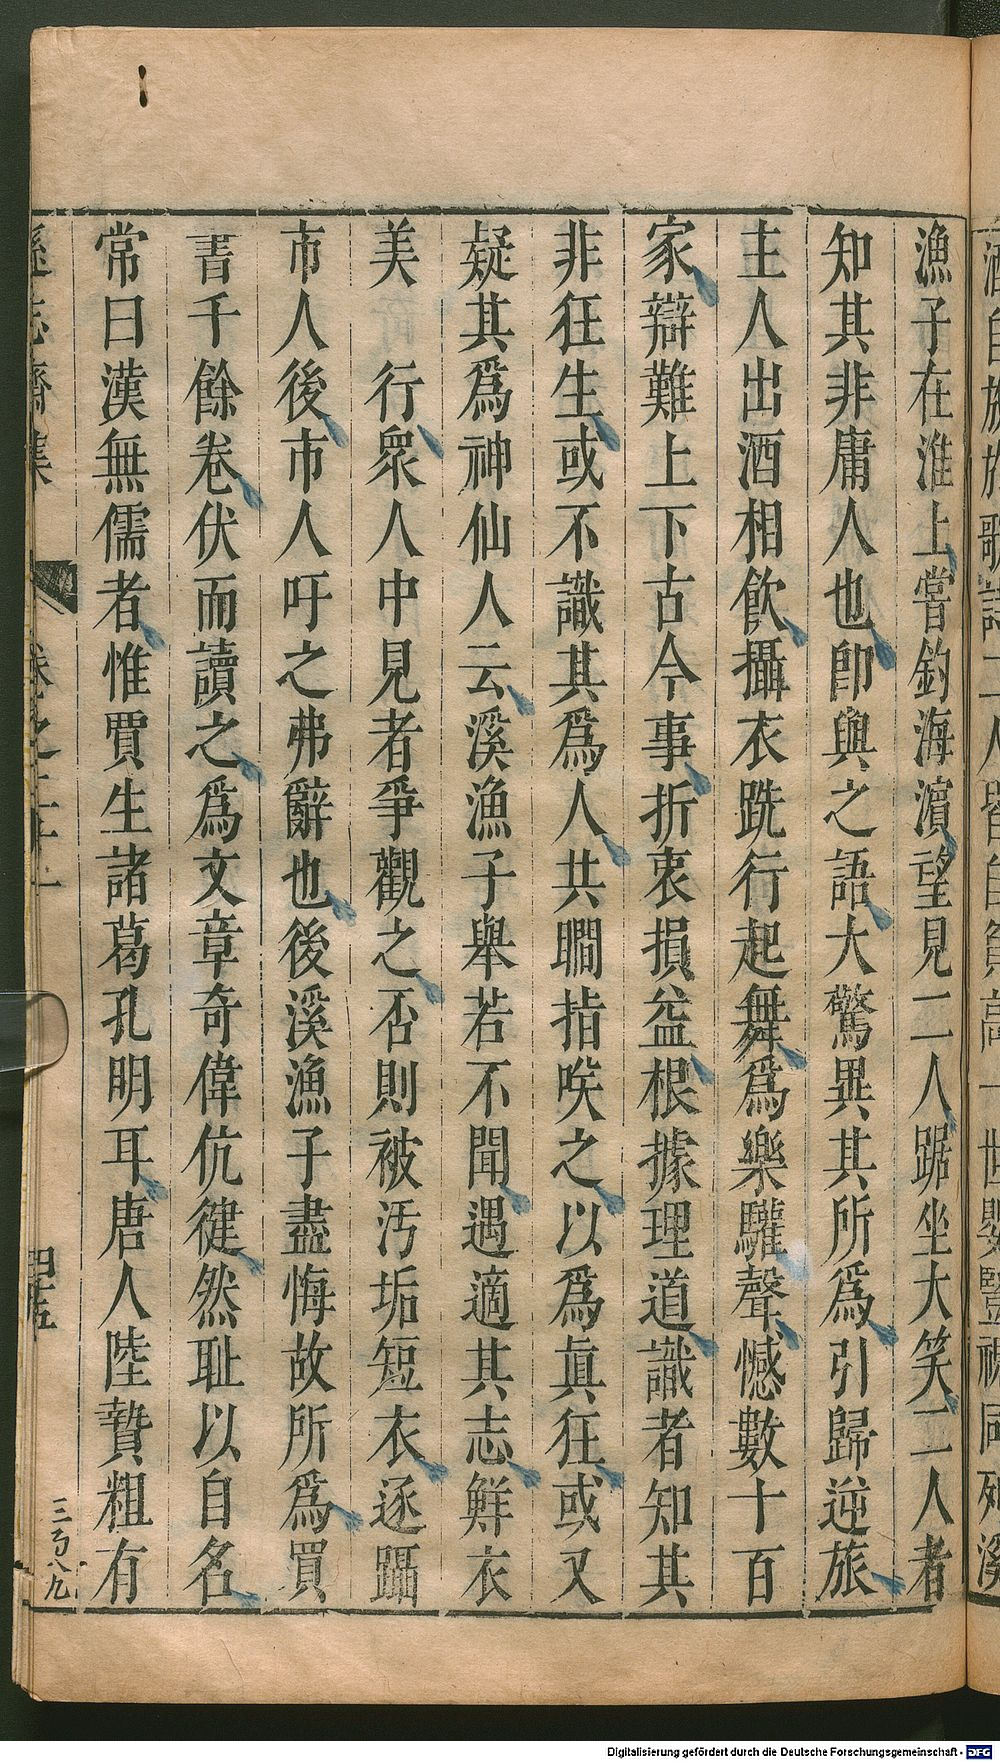 漁子在淮上嘗釣海濵望見二人踞坐大笑二人者
知其非庸人也卽與之語大驚異其所爲引歸逆旅
主人出酒相飲攝衣跣行起舞爲樂驩聲憾數十百
家辯難上下古今事折衷損益根據理道識者知其
非狂生或不識其爲人共瞷指唉之以爲眞狂或又
疑其爲神仙人云溪漁子舉若不聞遇適其志鮮衣
美 行衆人中見者爭觀之否則被汚垢短衣逐躡
市人後市人吁之弗辭也後溪漁子盡悔故所爲買
書千餘卷伏而讀之爲文章奇偉伉健然耻以自名
常曰漢無儒者惟賈生諸葛孔明耳唐人陸贄粗有
遜志齋集 卷之二十一 四十五
三百八九
Digitalisierung gefördert durch die Deutsche Forschungsgemeinschaft - DFG